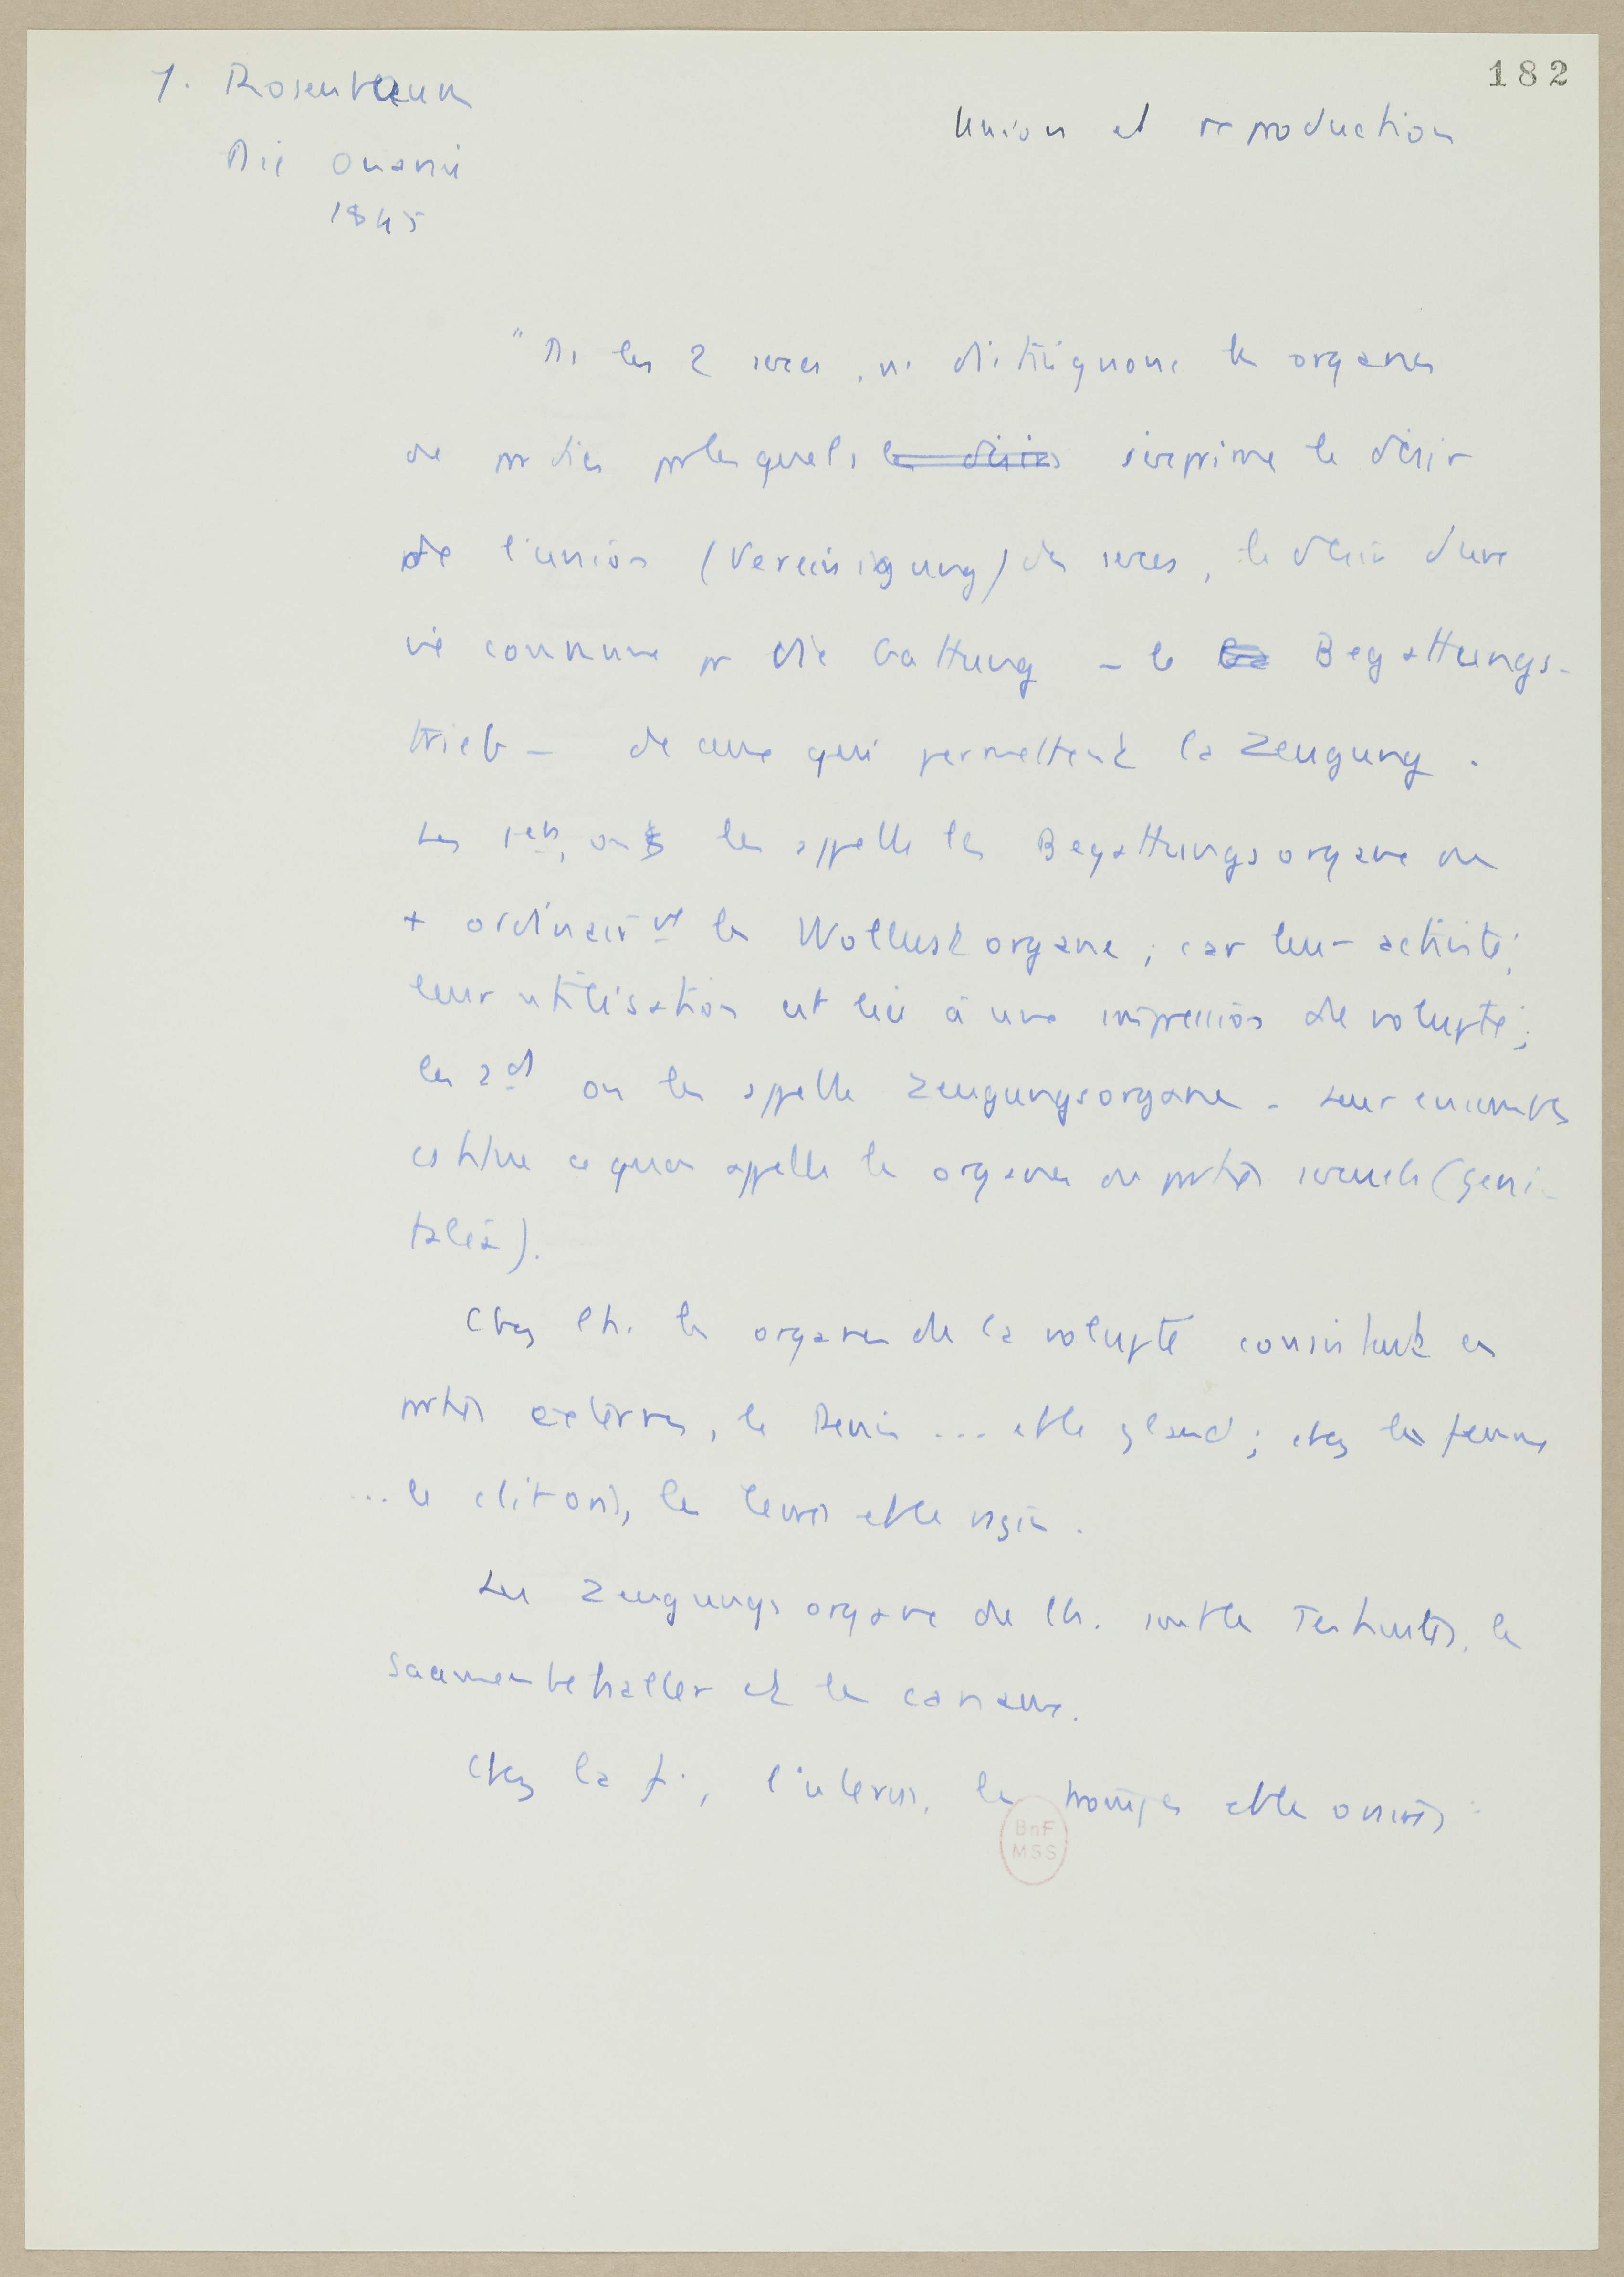 182
J. Rosenbaum
Union et reproduction
Die Onanie
1845
"Ds les 2 sexes, ns distinguons les organes
de parties par lesquels les désirs s'exprime le désir
de l'union (Vereinigung) des sexes, le désir d'une
vie commune pr die Gattung – le Begattungs-
trieb – de ceux qui permettent la Zeugung.
Les 1ers, on les appelle les Begattungsorgane ou
+ ordinairmt les Wollustorgane ; car leur activité,
leur utilisation est liée à une impression de volupté ;
les 2d on les appelle Zeugungsorgane. Leur ensemble
constitue ce qu'on appelle les organes ou parties sexuels (geni-
talia).
Chez l'h. les organes de la volupté consistent en
parties externes, le Penis ... et le gland ; chez les femmes
... le clitoris, les lèvres et le vagin.
Les Zeugungsorgane de l'h. sont les Testicules, le
Saamenbehalter et les canaux.
Chez la f., l'uterus, les trompes et les ovaires
BnF
MSS